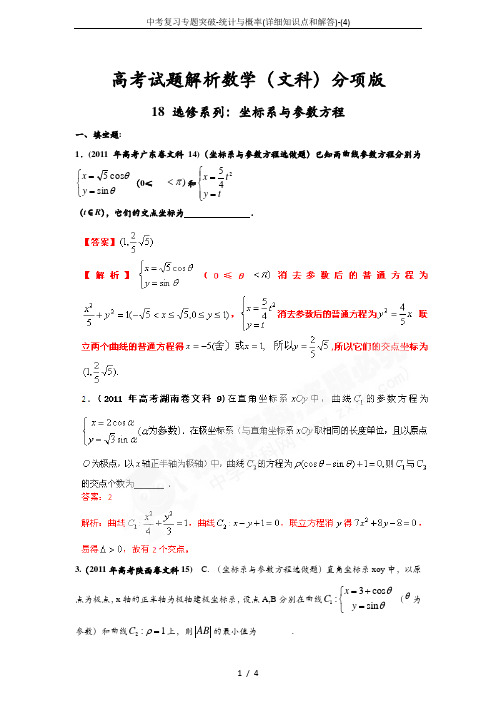 中考复习专题突破-统计与概率(详细知识点和解答)-(4)
高考试题解析数学（文科）分项版
18 选修系列：坐标系与参数方程
一、填空题:
1．(2011 年高考广东卷文科 14)（坐标系与参数方程选做题）已知两曲线参数方程分别为
{x = √5 cosθ, y = sinθ (0≤ < π) 和 {x = 5/4 t², y = t
（t∈R)，它们的交点坐标为 ．
【答案】(1, 2/5 √5)
【解析】{x = √5 cosθ, y = sinθ (0≤θ <π) 消去参数后的普通方程为
x²/5 + y² = 1(−√5 < x ≤ √5, 0 ≤ y ≤ 1)，{x = 5/4 t², y = t 消去参数后的普通方程为 y² = 4/5 x 联
立两个曲线的普通方程得 x = −5(舍) 或 x = 1, 所以 y = 2/5 √5 ,所以它们的交点坐标为
(1, 2/5 √5).
2．(2011 年高考湖南卷文科 9)在直角坐标系 xOy 中，曲线 C₁ 的参数方程为
{x = 2cosα, y = √3 sinα (α为参数)．在极坐标系（与直角坐标系 xOy 取相同的长度单位，且以原点
O 为极点，以 x 轴正半轴为极轴）中，曲线 C₂ 的方程为 ρ(cosθ − sinθ) + 1 = 0, 则 C₁ 与 C₂
的交点个数为 ．
答案：2
解析：曲线 C₁: x²/4 + y²/3 = 1，曲线 C₂: x − y + 1 = 0，联立方程消 y 得 7x² + 8x − 8 = 0，
易得 Δ > 0，故有 2 个交点。
3.（2011 年高考陕西卷文科 15） C.（坐标系与参数方程选做题）直角坐标系 xoy 中，以原
点为极点，x 轴的正半轴为极轴建极坐标系，设点 A,B 分别在曲线 C₁: {x = 3 + cosθ, y = sinθ （θ为
参数）和曲线 C₂: ρ = 1 上，则 |AB| 的最小值为 .
1 / 4